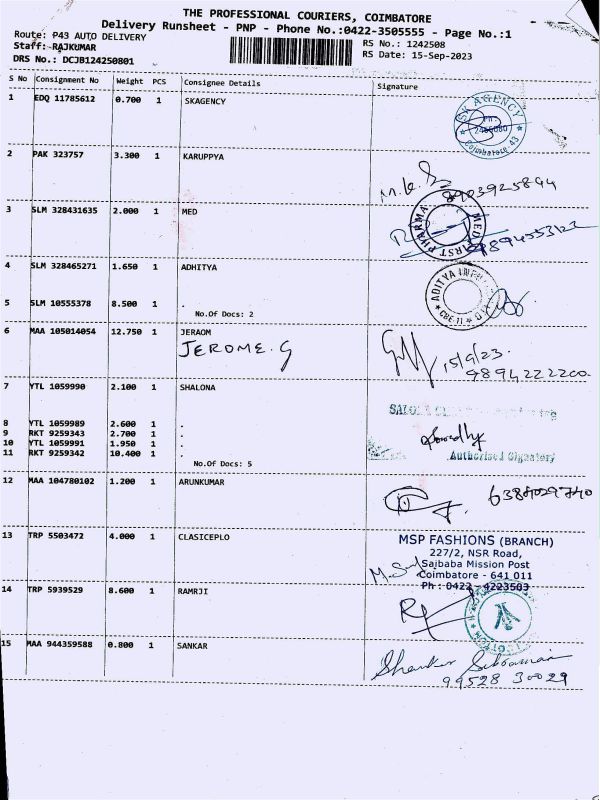 THE PROFESSIONAL COURIERS, COIMBATORE
Delivery Runsheet - PNP - Phone No.:0422-3505555 - Page No.:1
Route: P43 AUTO DELIVERY
RS No.: 1242508
Staff: RAJKUMAR
RS Date: 15-Sep-2023
DRS No.: DCJB124250801
S No Consignment No Weight PCS Consignee Details Signature
1 EDQ 11785612 0.700 1 SKAGENCY
SK AGENCY
Coimbatore-43
2 PAK 323757 3.300 1 KARUPPYA
8903925894
3 SLM 328431635 2.000 1 MED
MED FIRST PHARMA
4 SLM 328465271 1.650 1 ADHITYA
ADITYA
CBE-11
5 SLM 10555378 8.500 1 .
No.Of Docs: 2
6 MAA 105014054 12.750 1 JERAOM
JEROME.G
15/9/23.
9894222200
7 YTL 1059990 2.100 1 SHALONA
8 YTL 1059989 2.600 1 .
9 RKT 9259343 2.700 1 .
10 YTL 1059991 1.950 1 .
11 RKT 9259342 10.400 1 .
Authorised Signatory
No.Of Docs: 5
12 MAA 104780102 1.200 1 ARUNKUMAR
13 TRP 5503472 4.000 1 CLASICEPLO
MSP FASHIONS (BRANCH)
227/2, NSR Road,
Saibaba Mission Post
Coimbatore - 641 011
Ph : 0422 - 4223503
14 TRP 5939529 8.600 1 RAMRJI
15 MAA 944359588 0.800 1 SANKAR
99528 30029